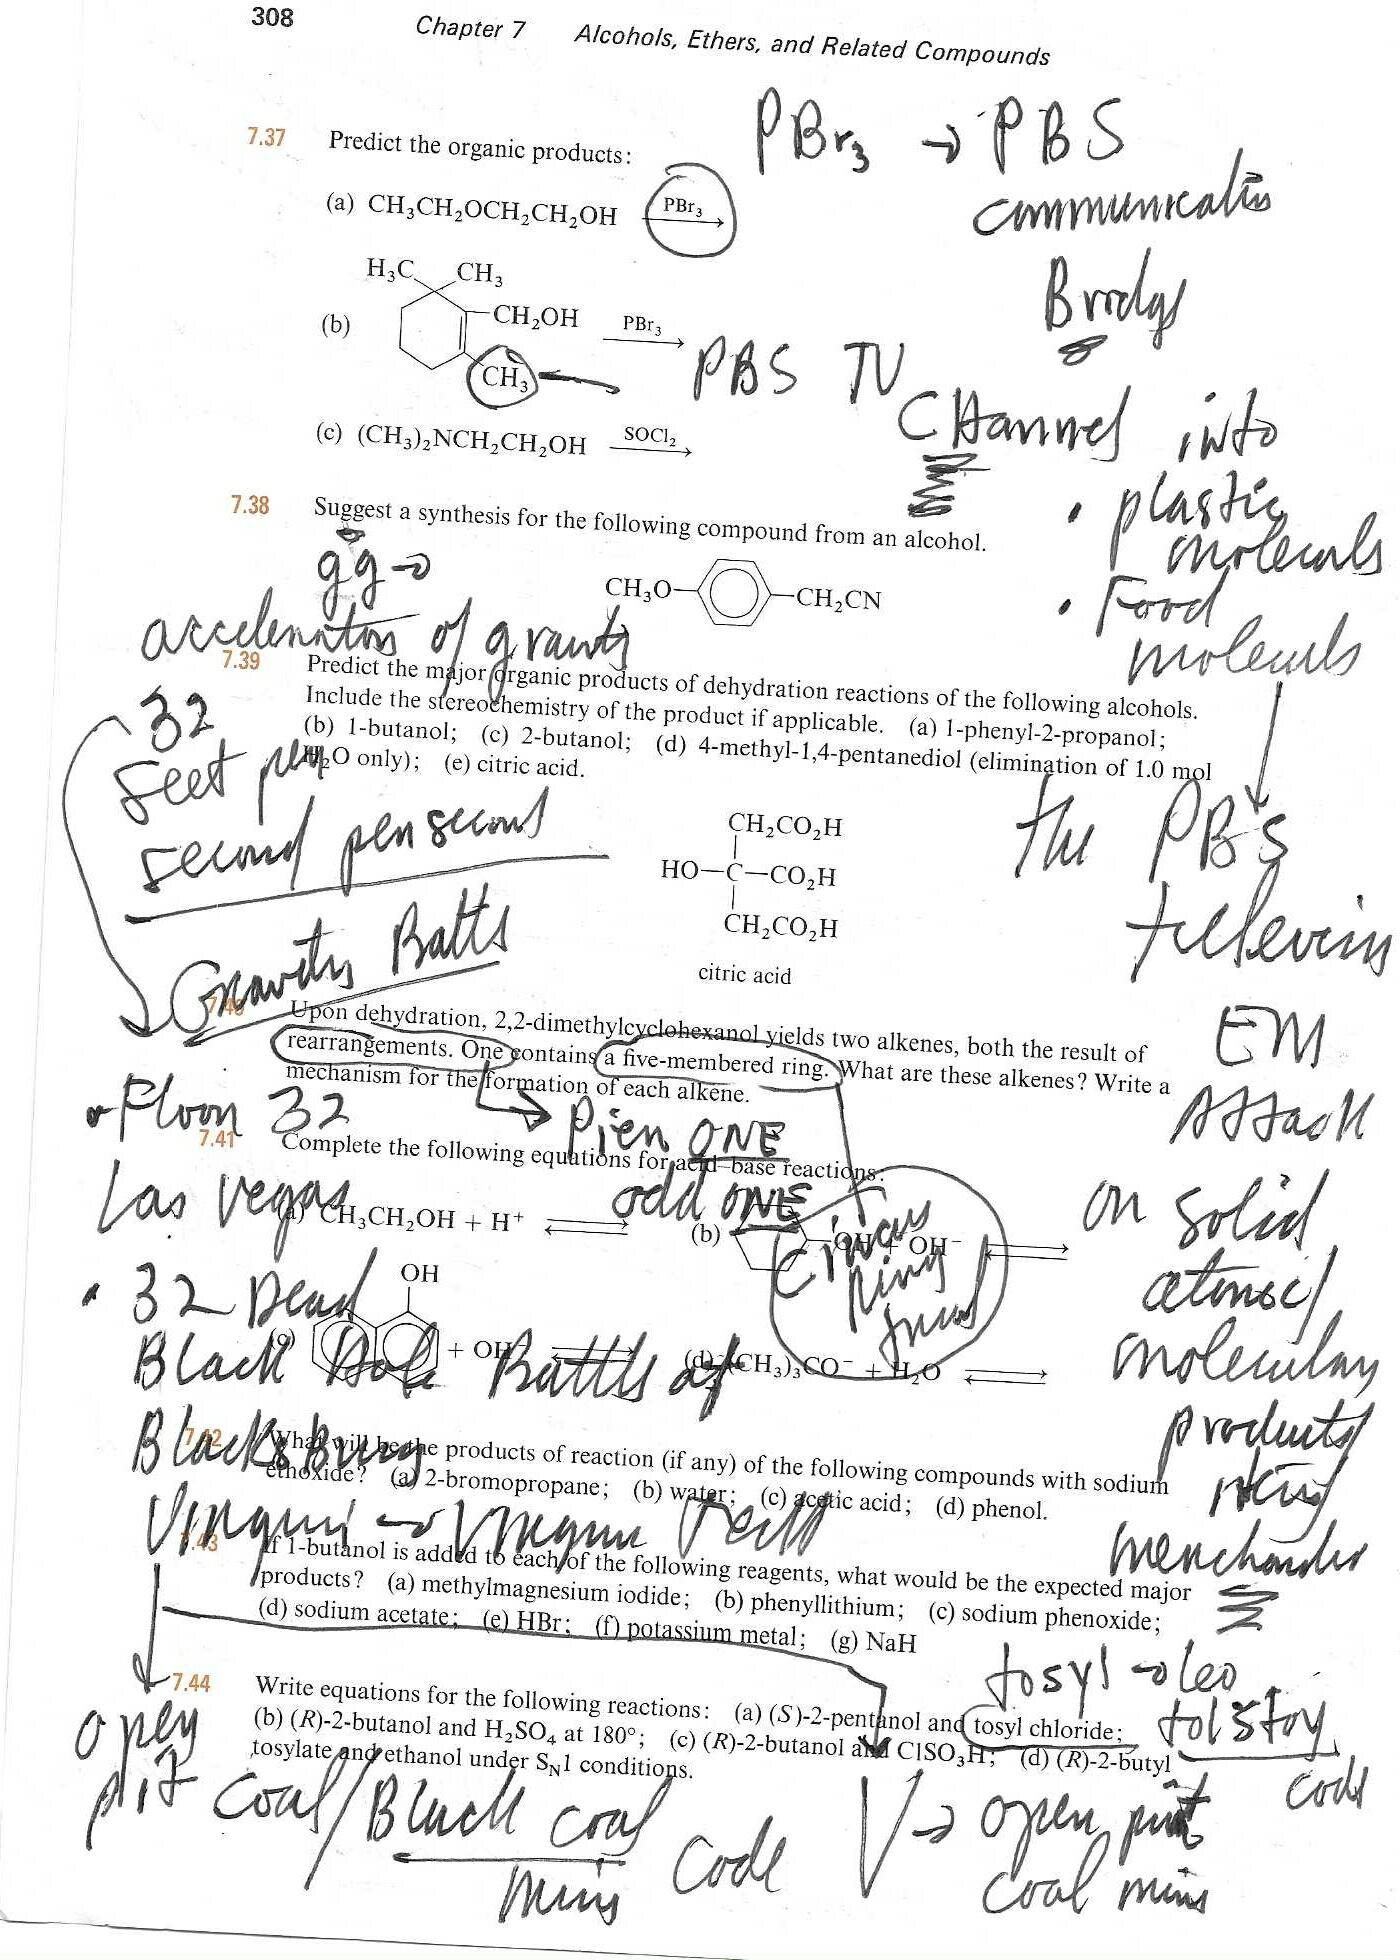 308 Chapter 7 Alcohols, Ethers, and Related Compounds
PBr₃ → PBS
7.37 Predict the organic products:
communicatin
(a) CH₃CH₂OCH₂CH₂OH PBr₃
H₃C CH₃
(b) CH₂OH PBr₃
CH₃
PBS TV
CHannel into
(c) (CH₃)₂NCH₂CH₂OH SOCl₂
• plastic
molecules
7.38 Suggest a synthesis for the following compound from an alcohol.
gg →
CH₃O CH₂CN
• Food
molecules
accelerators of gravity
7.39 Predict the major organic products of dehydration reactions of the following alcohols.
Include the stereochemistry of the product if applicable. (a) 1-phenyl-2-propanol;
(b) 1-butanol; (c) 2-butanol; (d) 4-methyl-1,4-pentanediol (elimination of 1.0 mol
H₂O only); (e) citric acid.
32
feet per
second per second
CH₂CO₂H
HO—C—CO₂H
CH₂CO₂H
citric acid
the PBS
Gravity Battle
7.40 Upon dehydration, 2,2-dimethylcyclohexanol yields two alkenes, both the result of
rearrangements. One contains a five-membered ring. What are these alkenes? Write a
mechanism for the formation of each alkene.
EM
Attack
• Floor 32
Pier ONE
7.41 Complete the following equations for acid–base reactions:
Las Vegas
odd ONE
(a) CH₃CH₂OH + H⁺ ⇌
(b) OH + OH⁻ ⇌
Circus
Ring
on solid
atomic/
molecular
products
• 32 Dead
Black Hole Battle of
Blacksburg
OH
(c) + OH⁻ ⇌
(d) (CH₃)₃CO⁻ + H₂O ⇌
7.42 What will be the products of reaction (if any) of the following compounds with sodium
ethoxide? (a) 2-bromopropane; (b) water; (c) acetic acid; (d) phenol.
Virginia → Virginia Tech
7.43 If 1-butanol is added to each of the following reagents, what would be the expected major
products? (a) methylmagnesium iodide; (b) phenyllithium; (c) sodium phenoxide;
(d) sodium acetate; (e) HBr; (f) potassium metal; (g) NaH
tosyl → Leo
tolstoy
code
7.44 Write equations for the following reactions: (a) (S)-2-pentanol and tosyl chloride;
(b) (R)-2-butanol and H₂SO₄ at 180°; (c) (R)-2-butanol and ClSO₃H; (d) (R)-2-butyl
tosylate and ethanol under SN1 conditions.
open
pit coal/Black coal
mine Code
V → open pit
coal mine